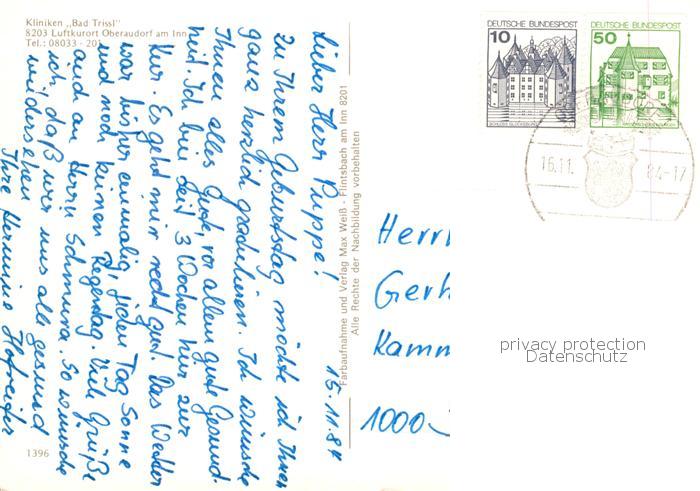 Kliniken „Bad Trissl"
8203 Luftkurort Oberaudorf am Inn
Tel.: 08033 - 201
15.11.84
Lieber Herr Puppe!
Zu Ihrem Geburtstag möchte ich Ihnen
ganz herzlich gratulieren. Ich wünsche
Ihnen alles Gute, vor allem gute Gesund-
heit. Ich bin seit 3 Wochen hier zur
Kur. Es geht mir recht gut. Das Wetter
war bisher einmalig, jeden Tag Sonne
und noch keinen Regentag. Viele Grüße
auch an Herrn Schmura. So wünsche
ich, daß wir uns alle gesund
wiedersehen
Ihre Hermine Hofreiter
1396
Farbaufnahme und Verlag Max Weiß - Flintsbach am Inn 8201
Alle Rechte der Nachbildung vorbehalten
DEUTSCHE BUNDESPOST
10
SCHLOSS GLÜCKSBURG
DEUTSCHE BUNDESPOST
50
16.11. 84-17
Herrn
Gerh
Kamm
1000-
privacy protection
Datenschutz